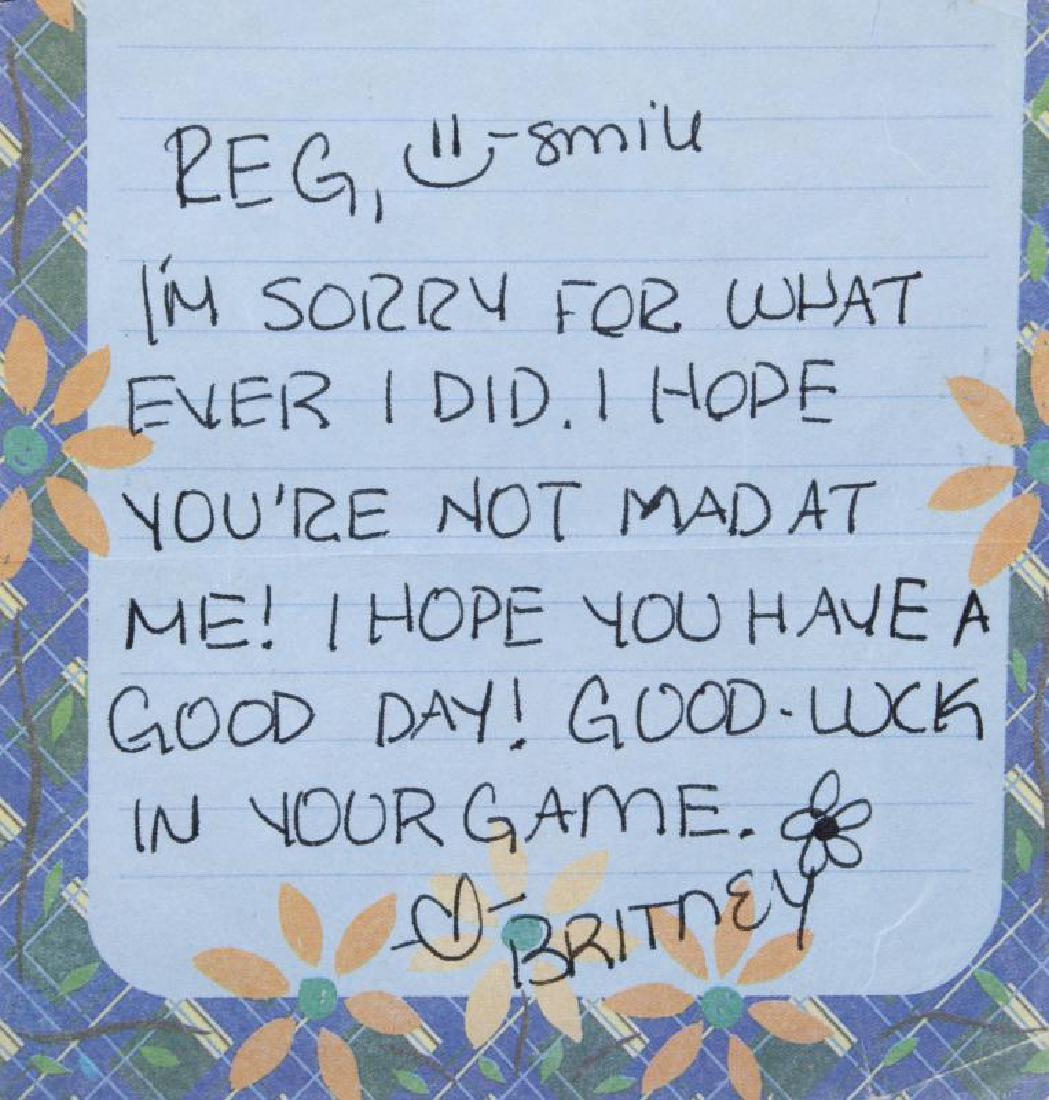 REG, -smile
I'M SORRY FOR WHAT
EVER I DID. I HOPE
YOU'RE NOT MAD AT
ME! I HOPE YOU HAVE A
GOOD DAY! GOOD-LUCK
IN YOUR GAME.
-BRITNEY